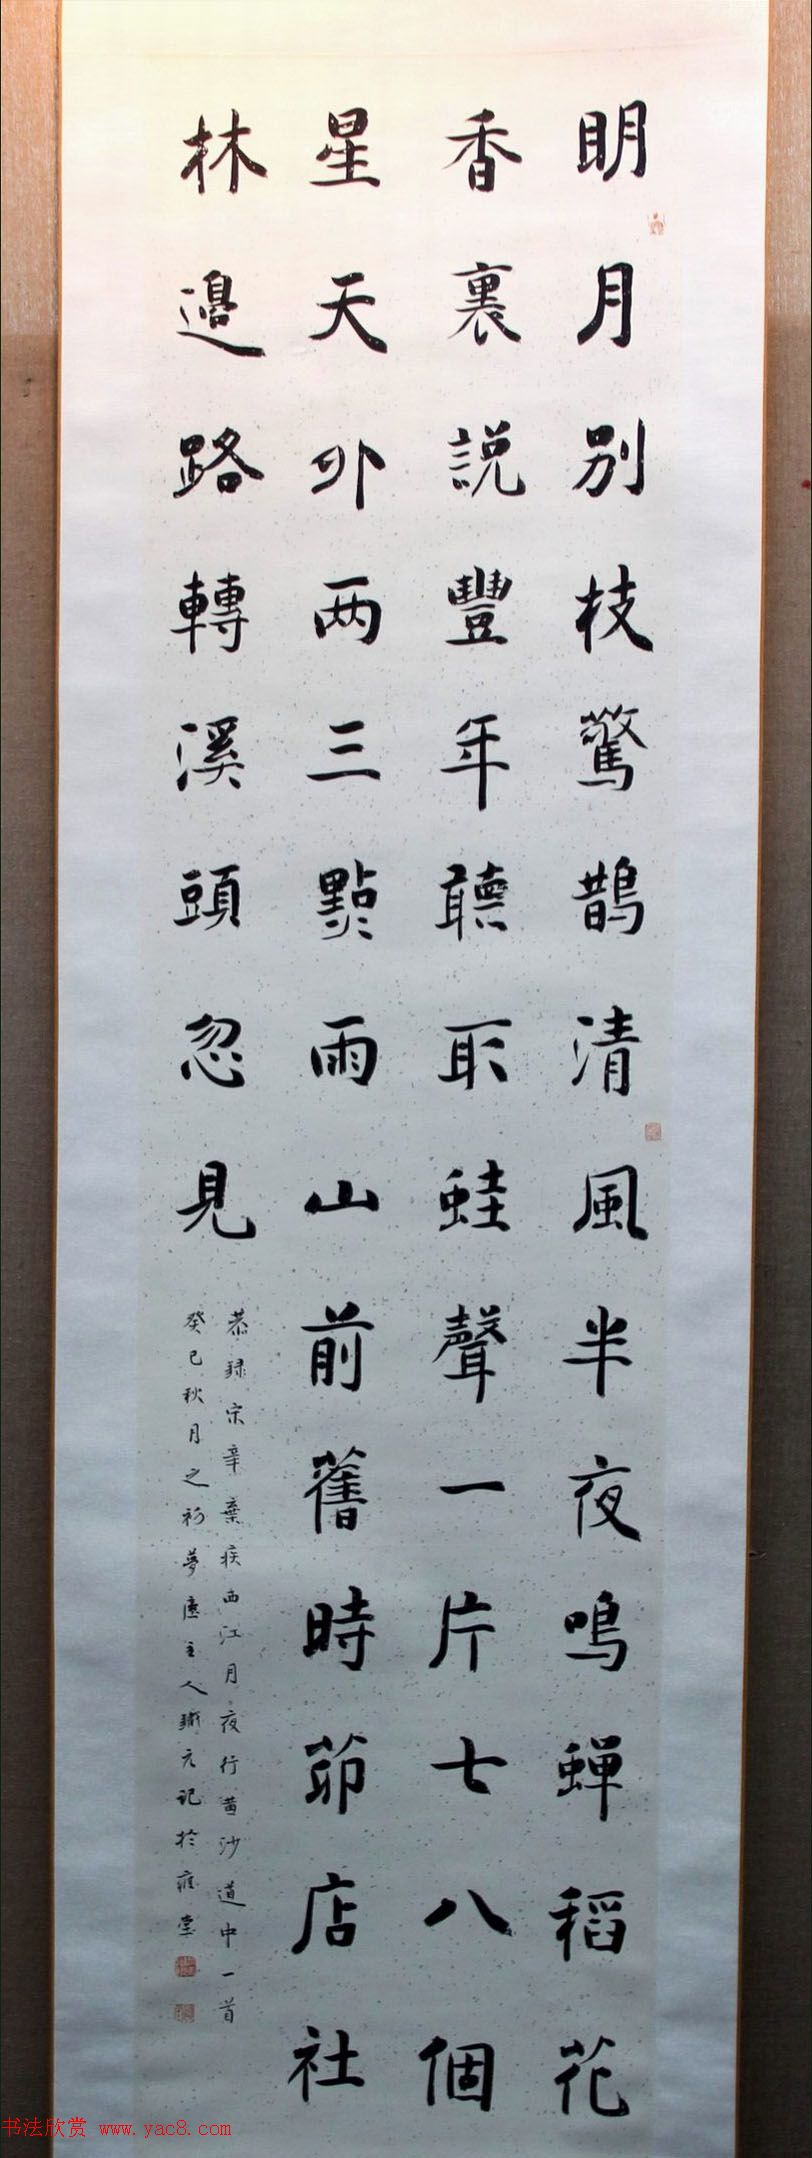 明月別枝驚鵲清風半夜鳴蟬稻花
香裏説豐年聽取蛙聲一片七八個
星天外兩三點雨山前舊時茆店社
林邊路轉溪頭忽見
恭録宋辛棄疾西江月夜行黄沙道中一首
癸巳秋月之初夢廬主人元記於堂
书法欣赏 www.yac8.com